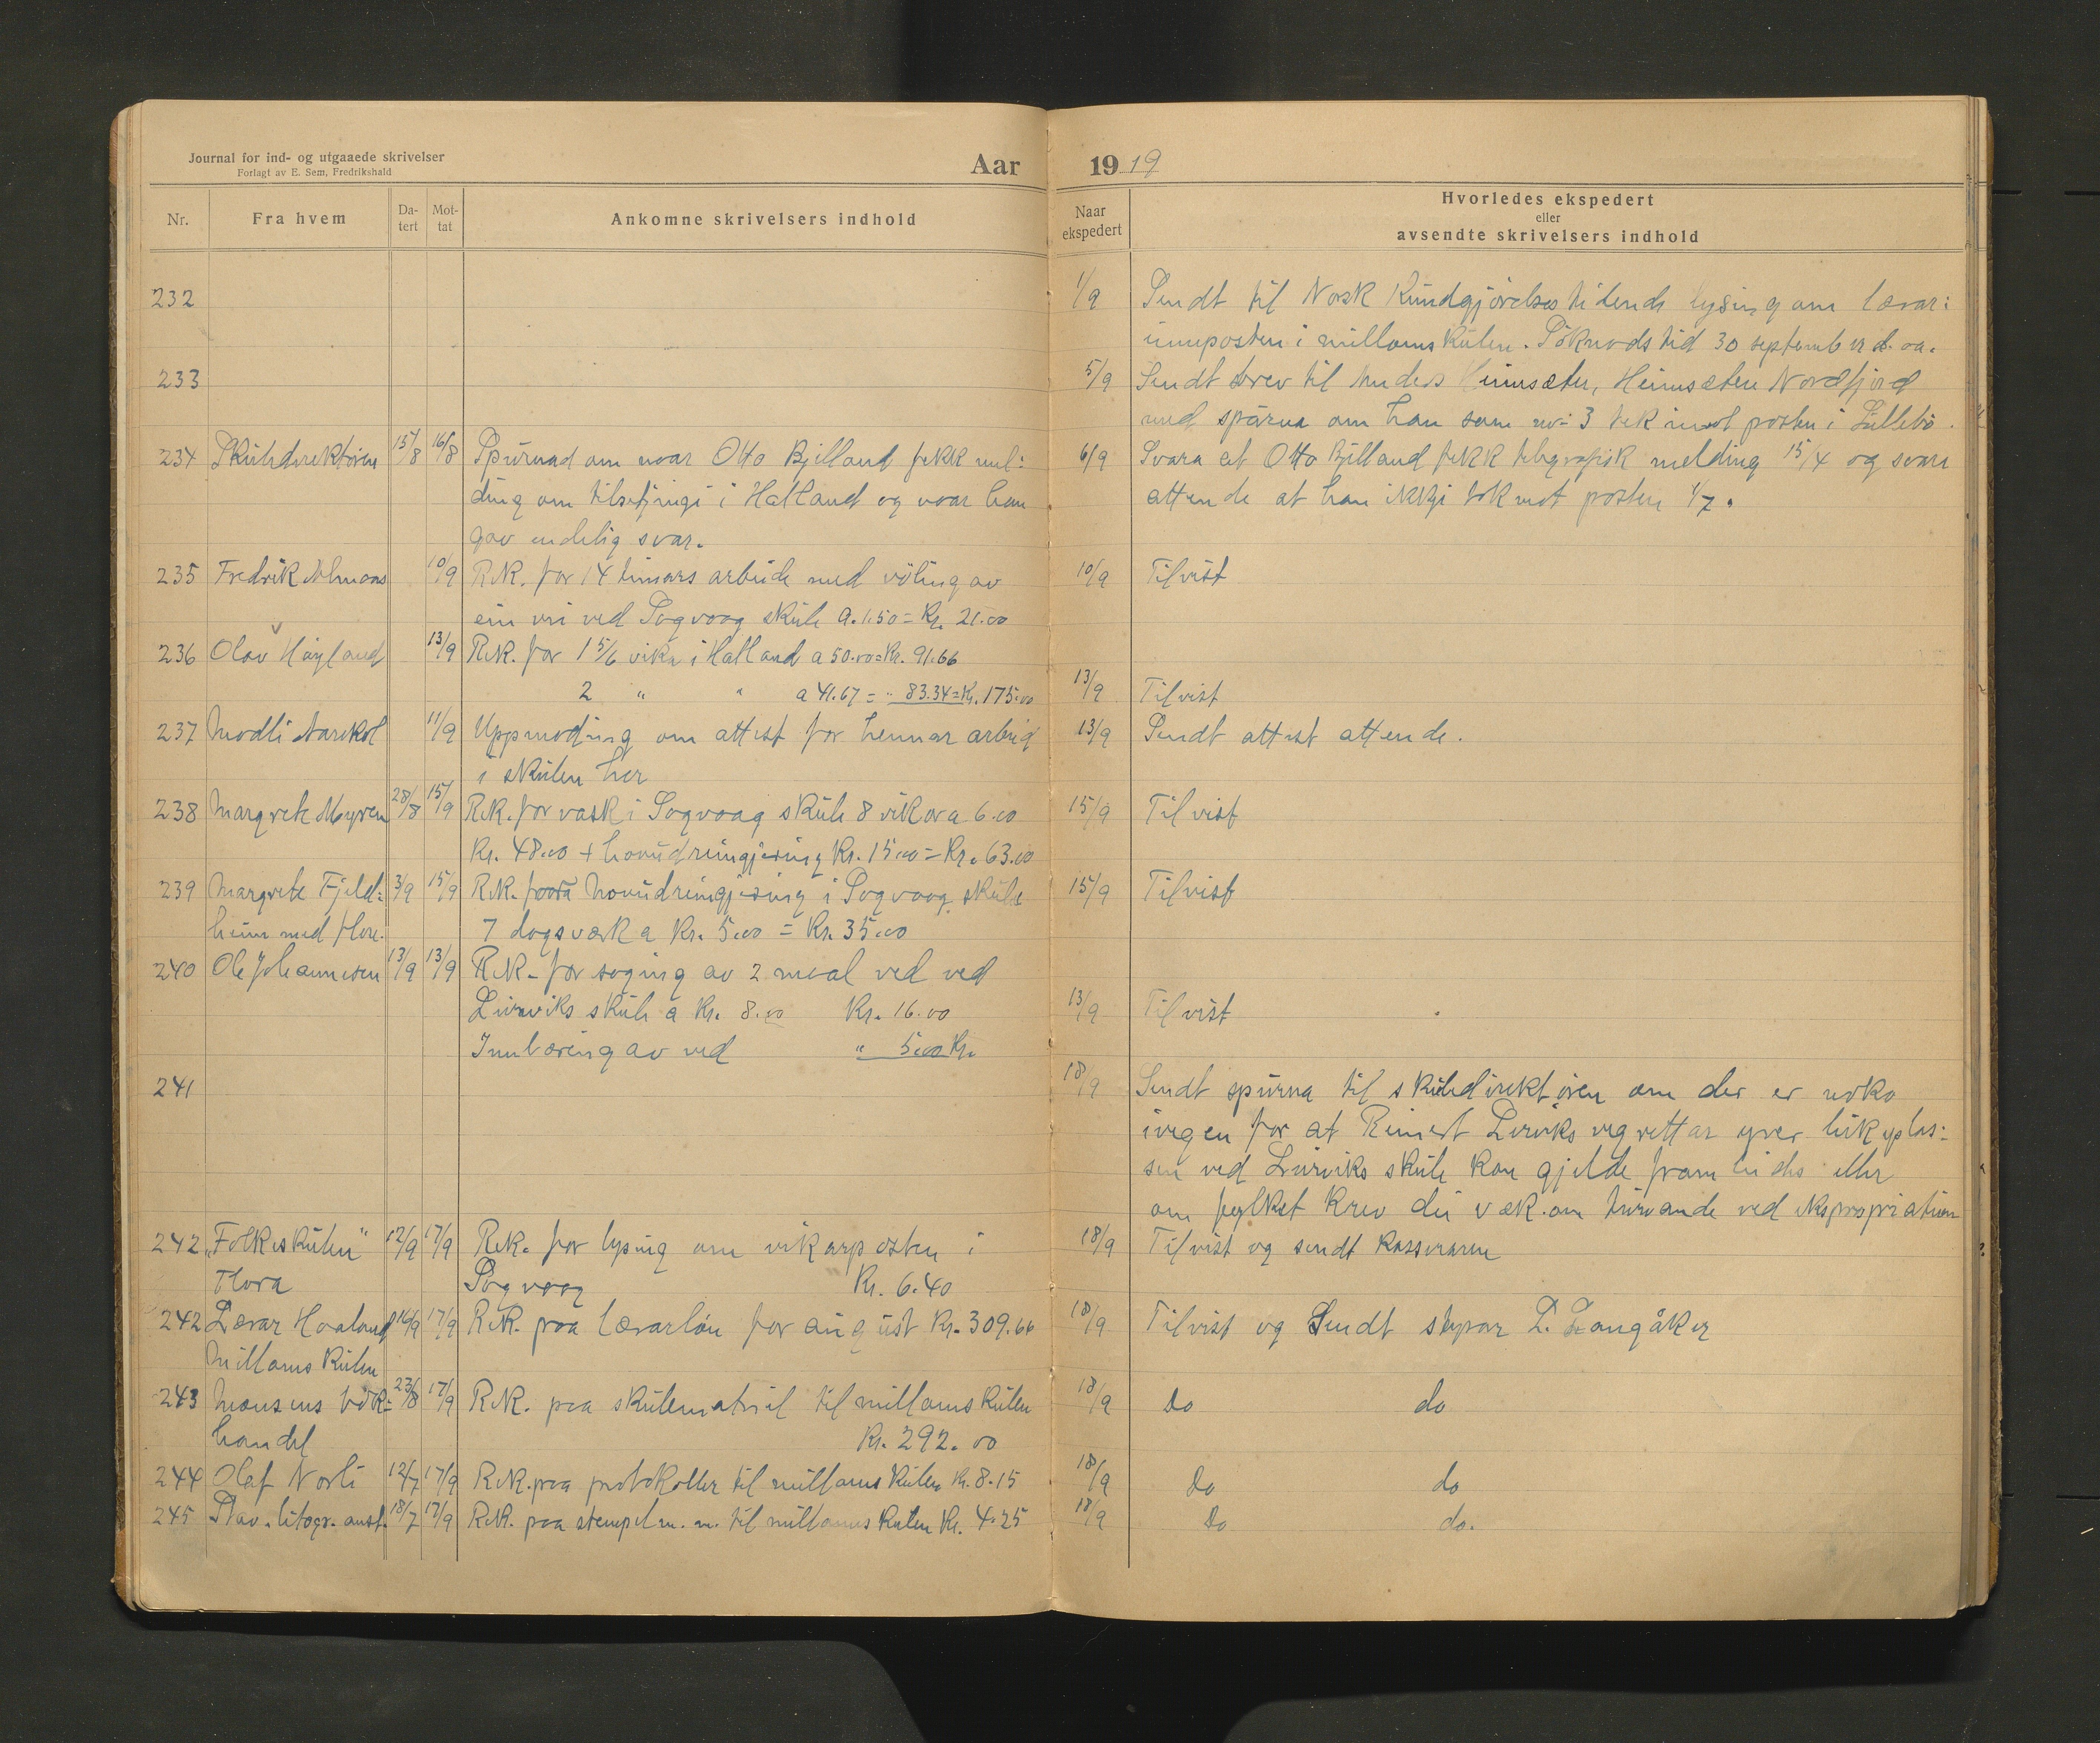 Journal for ind- og utgaaede skrivelser
Forlagt av E. Sem, Fredrikshald
Aar 1919
Nr. Fra hvem Da-tert Mot-tat Ankomne skrivelsers indhold
Naar ekspedert
Hvorledes ekspedert
eller
avsendte skrivelsers indhold
232 1/9 Sendt til Norsk Kundgjørelsestidende lysing om lærar:
inneposten i millomskulen. Søknadstid 30 september d. aa.
233 5/9 Sendt brev til Heimsæter, Heimsæter Nordfjord
med spurna om han som nr. 3 tek imot posten i
234 Skuledirektøren 15/8 16/8 Spurnad om naar Otto Bjelland fekk mel:
ding om tilsetjingi i Hatland og naar han
gav endelig svar.
6/9 Svara at Otto Bjelland fekk telegrafisk melding 15/4 og svara
attende at han ikkje tok mot posten 1/7.
235 Fredrik 10/9 Rek. for 14 timars arbeide med vøling av
ein vri ved Sogvaag skule a. 1.50 = Kr. 21.00
10/9 Tilvist
236 Olav Høyland 13/9 Rek. for 1 5/6 vike i Hatland a 50.00 = Kr. 91.66
2 " " a 41.67 = " 83.34 = Kr. 175.00
13/9 Tilvist
237 11/9 Uppmoding om attest for hennar arbeid
i skulen her
13/9 Sendt attest attende.
238 Margrete Myren 28/8 15/9 Rek. for vask i Sogvaag skule 8 vikor a 6.00
Kr. 48.00 + hovudreingjering Kr. 15.00 = Kr. 63.00
15/9 Tilvist
239 Margrete Fjeld: 3/9 15/9 Rek. for hovudreingjering i Sogvaag skule
heim med fleire. 7 dagsverk a Kr. 5.00 = Kr. 35.00
15/9 Tilvist
240 Ole Johannesen 13/9 13/9 Rek. for saging av 2 maal ved ved
Leirviks skule a Kr. 8.00 Kr. 16.00
Innbæring av ved " 5.00 Kr.
13/9 Tilvist
241 18/9 Sendt spurna til skuledirektøren om der er noko
ivegen for at Reinert Leirviks vegrettar yver leikeplas:
sen ved Leirviks skule kan gjelde frameides eller
om fylket krev dei væk om turvande ved ekspropriation
242 "Folkeskulen" 12/9 17/9 Rek. for lysing om vikarposten i
Flora Sogvaag Kr. 6.40
18/9 Tilvist og sendt kasseraren
242 Lærar Haaland 16/9 17/9 Rek. paa lærarløn for august Kr. 309.66
Millomskulen
18/9 Tilvist og Sendt styrar L. Langåker
243 Monsens bok: 23/8 17/9 Rek. paa skulematriel til millomskulen
handel Kr. 292.00
18/9 Do do
244 Olaf Norli 12/7 17/9 Rek. paa protokoller til millomskulen Kr. 8.15
18/9 Do do
245 Stav. litogr. anst. 18/7 17/9 Rek. paa stempel m. m. til millomskulen Kr. 4.25
18/9 Do do.